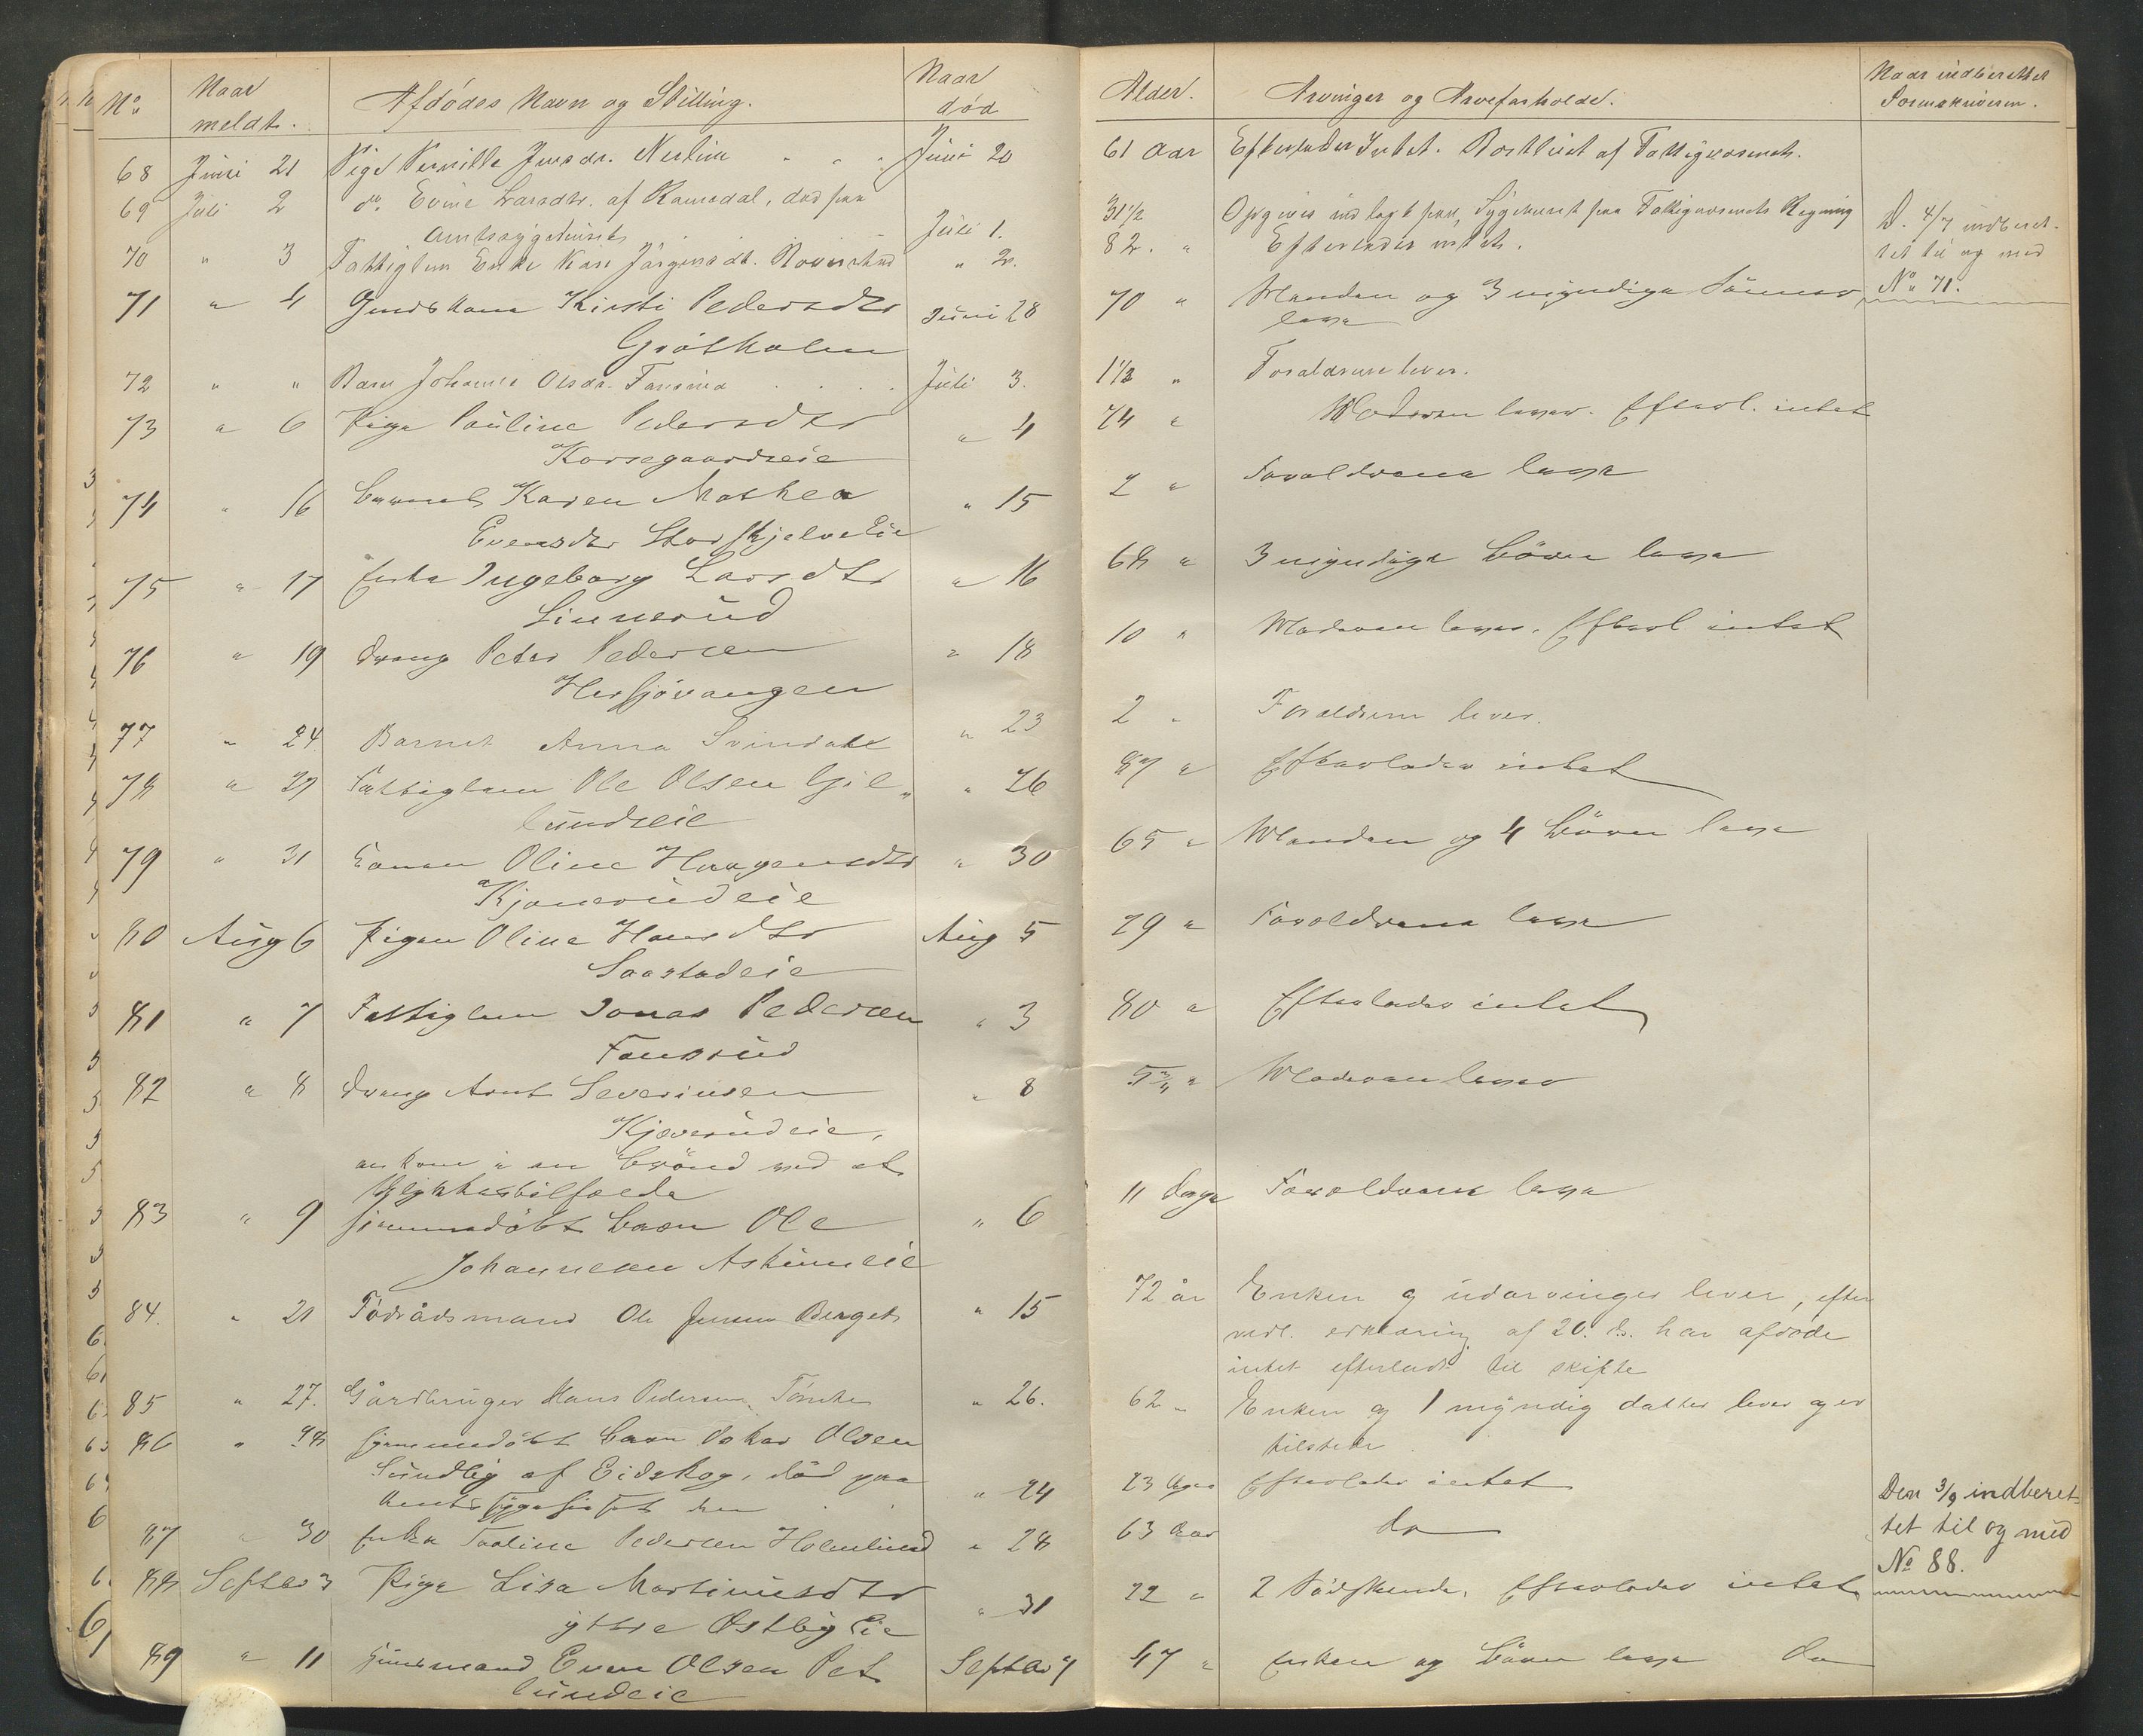 No
Naar
meldt.
Afdödes Navn og Stilling.
Naar
död
Alder.
Arvinger og Arveforholde.
Naar indberettet
Sorenskriveren.
68 Juni 21 Pige Pernille Jensdr. " " " Juni 20 61 Aar Efterlader Intet. af Fattigvæsenet.
69 Juli 2 do Evine Larsdtr. af Ramsdal, død paa
Amtssygehuset Juli 1. 31½ Opgives indlagt paa Sygehuset paa Fattigvæsenets Regning
70 " 3 Fattiglem Enke Kari Jörgensdt. " 2. 82. " Efterlader intet.
D. 4/7 indberet-
tet til og med
No 71.
71 " 4 Kirsti Pedersdtr Juni 28 70 " Manden og 3 myndige Sönner
Grötholen leve
72 " " Barn Johanne Olsdr. Juli 3. 1½ " Forældrene lever.
73 " 6 Pige Pauline Pedersdtr " 4 24 " Moderen lever. Efterl. intet
Korsegaardseie
74 " 16 Barnet Karen Mathea " 15 2 " Forældrene leve
Evensdtr Eie
75 " 17 Enke Ingeborg Larsdtr " 16 68 " 3 myndige Börn leve
Linnerud
76 " 19 Dreng Peter Pedersen " 18 10 " Moderen lever. Efterl intet
Hersjövangen
77 " 24 Barnet Anna Svindahl " 23 2 " Forældrene lever.
78 " 27 Fattiglem Ole Olsen Gil- " 26 87 " Efterlader intet
lundseie
79 " 31 Konen Oline Haagensdtr " 30 65 " Manden og 4 Börn leve
80 Aug 6 Pigen Oline Hansdtr Aug 5 29 " Forældrene leve
Saastadeie
81 " 7 Fattiglem Jonas Pedersen " 3 80 " Efterlader intet
Fonsrud
82 " 8 Dreng Arnt Severinsen " 8 5¾ " Moderen lever
omkom i en Brönd ved et
Ulykkestilfælde
83 " 9 hjemmedöbt Barn Ole " 6 11 Dage Forældrene leve
Johannesen Askimeie
84. " 21 Föderådsmand Ole Jensen Berget " 15 72 år Enken og udarvinger lever, efter
medl. erklæring af 20. ds. har afdöde
intet efterladt til skifte
85 " 27. Gårdbruger Hans Pedersen " 26. 62 " Enken og 1 myndig datter lever og er
tilstede
86 " 28 hjemmedöbt Barn Oskar Olsen
Sundby af Eidskog, död paa
Amtssygehuset den " 24 23 Dage Efterlader intet
87 " 30 Enke Pedersen " 28 63 Aar do
88 Septbr 3 Pige Lisa Martinusdtr
ytre Östby Eie " 31 22 " 2 Södskende. Efterlader intet
Den 3/9 indberet-
tet til og med
No 88.
89 " 11 Husmand Even Olsen Pet Septbr 7 47 " Enken og Börn leve do
lundeie